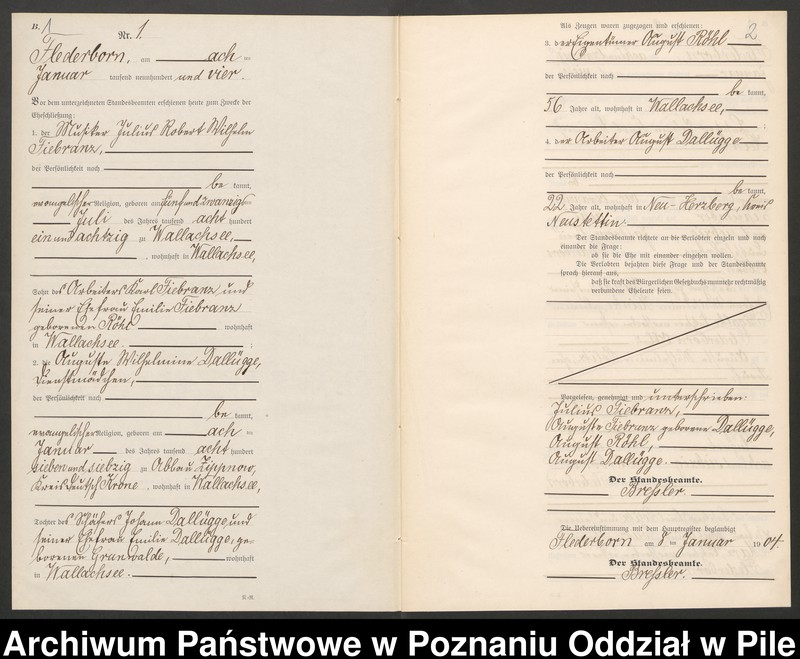 B. 1
Nr. 1.
Flederborn, am ach ten
Januar tausend neunhundert und vier.
Vor dem unterzeichneten Standesbeamten erschienen heute zum Zwecke der
Eheschließung:
1. der Musiker Julius Robert Wilhelm
Fiebranz,
der Persönlichkeit nach
be kannt,
evangelischer Religion, geboren am fünfundzwanzig ten
Juli des Jahres tausend acht hundert
ein und achtzig zu Wallachsee,
, wohnhaft in Wallachsee,
Sohn des Arbeiters Karl Fiebranz und
seiner Ehefrau Emilie Fiebranz
geborenen Röhl wohnhaft
in Wallachsee. ;
2. die Auguste Wilhelmine Dallügge,
Dienstmädchen,
der Persönlichkeit nach
be kannt,
evangelischer Religion, geboren am ach ten
Januar des Jahres tausend acht hundert
sieben und siebzig zu Abbau Zippnow,
Kreis Deutsch Krone, wohnhaft in Wallachsee,
Tochter des Schäfers Johann Dallügge und
seiner Ehefrau Emilie Dallügge, ge-
borenen Grunwalde, wohnhaft
in Wallachsee.
2
Als Zeugen waren zugezogen und erschienen:
3. der Eigentümer August Röhl
der Persönlichkeit nach
be kannt,
56 Jahre alt, wohnhaft in Wallachsee,
;
4. der Arbeiter August Dallügge
der Persönlichkeit nach
be kannt,
22 Jahre alt, wohnhaft in Neu-Herzberg, Kreis
Neustettin
Der Standesbeamte richtete an die Verlobten einzeln und nach
einander die Frage:
ob sie die Ehe mit einander eingehen wollen.
Die Verlobten bejahten diese Frage und der Standesbeamte
sprach hierauf aus,
daß sie kraft des Bürgerlichen Gesetzbuchs nunmehr rechtmäßig
verbundene Eheleute seien.
Vorgelesen, genehmigt und unterschrieben:
Julius Fiebranz,
Auguste Fiebranz geborene Dallügge,
August Röhl,
August Dallügge.
Der Standesbeamte.
Breßler.
Die Uebereinstimmung mit dem Hauptregister beglaubigt
Flederborn am 8 ten Januar 1904.
Der Standesbeamte.
Breßler.
Archiwum Państwowe w Poznaniu Oddział w Pile